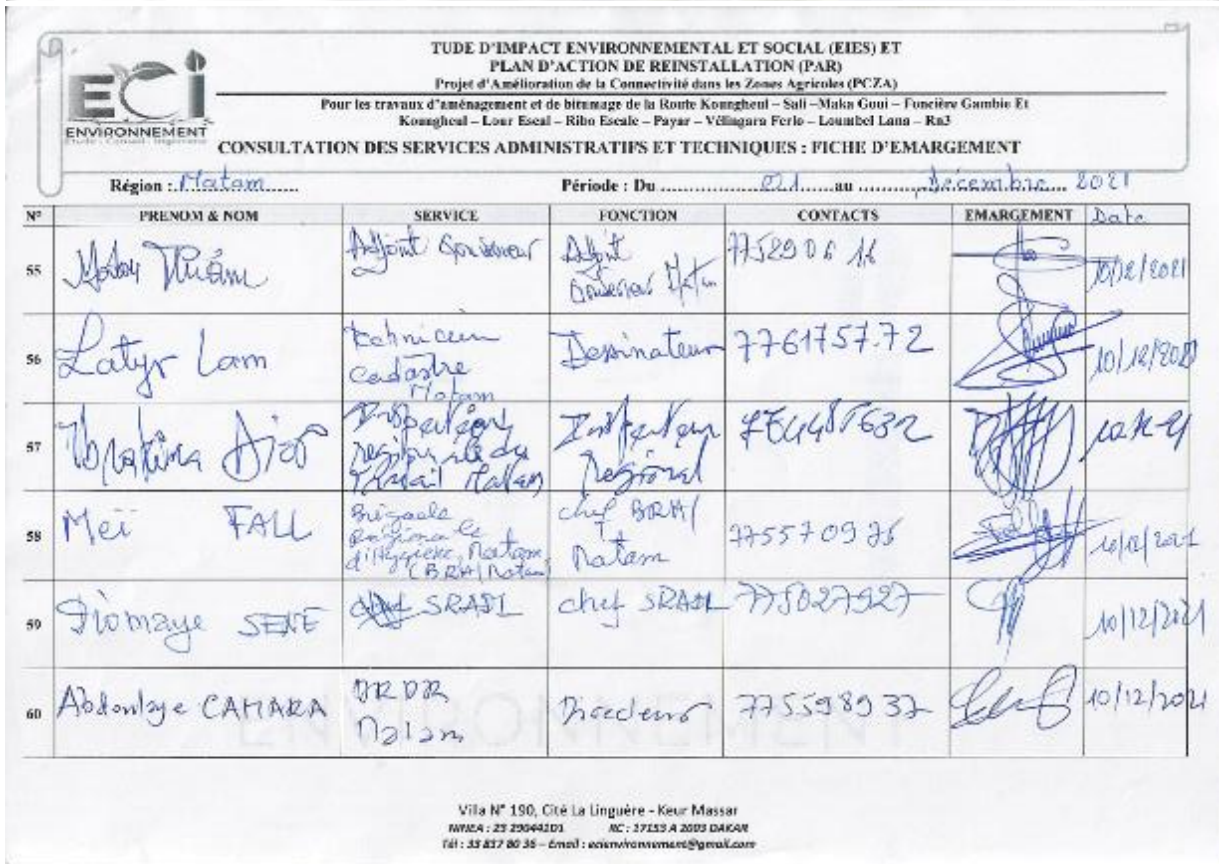 ECi
ENVIRONNEMENT
Etude - Conseil - Ingénierie
TUDE D'IMPACT ENVIRONNEMENTAL ET SOCIAL (EIES) ET
PLAN D'ACTION DE REINSTALLATION (PAR)
Projet d'Amélioration de la Connectivité dans les Zones Agricoles (PCZA)
Pour les travaux d'aménagement et de bitumage de la Route Koungheul – Sali –Maka Goui – Foncière Gambie Et
Koungheul – Lour Escal – Ribo Escale – Payar – Vélingara Ferlo – Loumbel Lana – Rn3
CONSULTATION DES SERVICES ADMINISTRATIFS ET TECHNIQUES : FICHE D'EMARGEMENT
Région : Matam Période : Du 021 au Décembre 2021
N° PRENOM & NOM SERVICE FONCTION CONTACTS EMARGEMENT Date
55 Thiam Adjoint Adjoint 77 10/12/2021
Matam
56 Latyr Lam Cadastre Dessinateur 7761757.72 10/12/2021
Matam
57 Inspection Inspecteur
régionale du Régional
Travail Matam
58 Meï FALL Brigade chef BRH/
Régionale Matam
d'Hygiène Matam
(BRH/Matam)
59 SENE SRADL chef SRADL 775027927 10/12/2021
60 Abdoulaye CAMARA DRDR Directeur 775598937 10/12/2021
Matam
ENVIRONNEMENT
Villa N° 190, Cité La Linguère - Keur Massar
NINEA : 23 29044201 RC : 17153 A 2003 DAKAR
Tél : 33 837 80 36 – Email : ecienvironnement@gmail.com